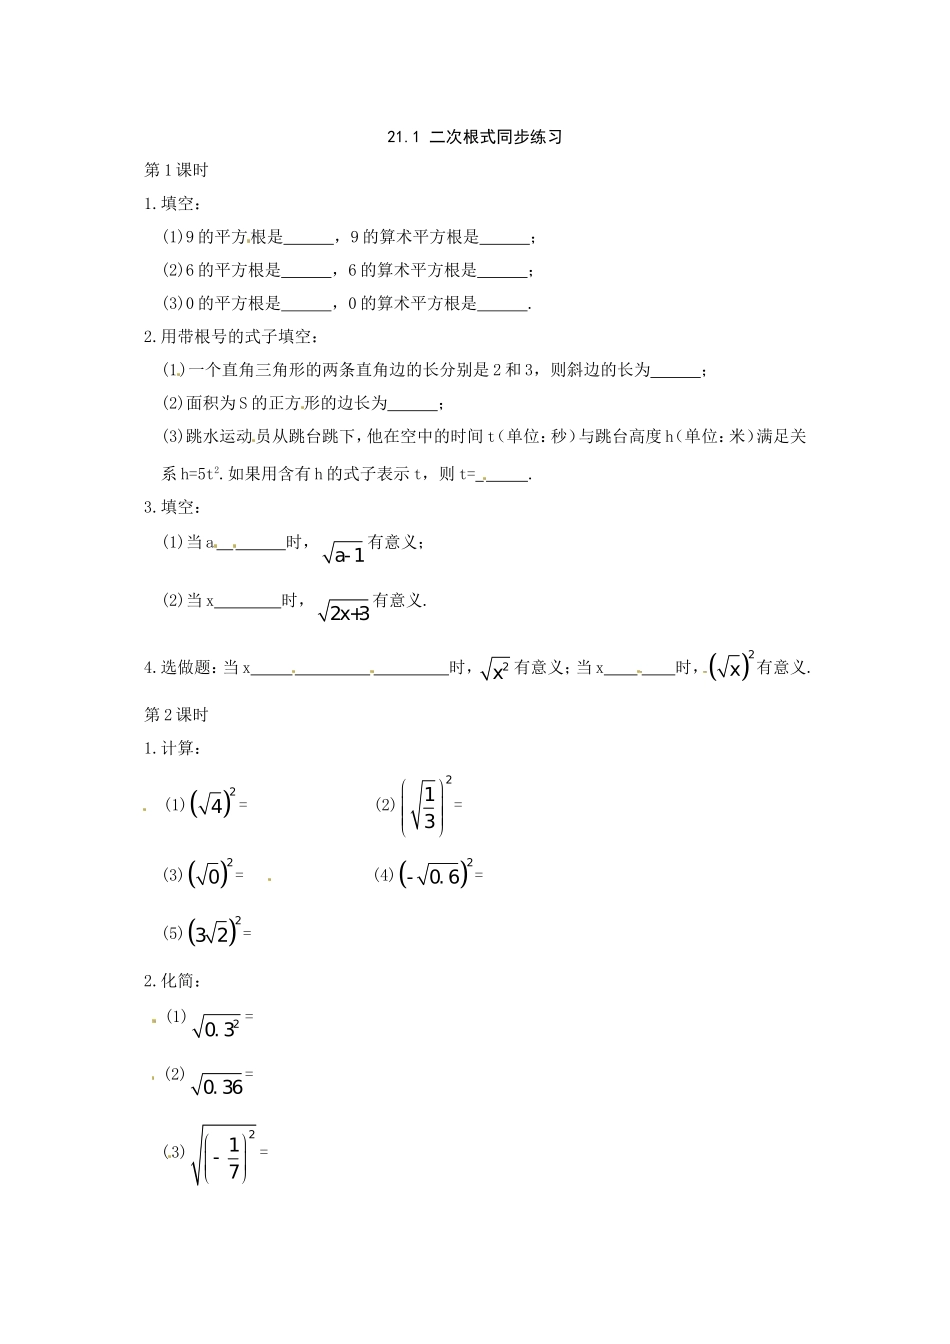 21.1 二次根式同步练习
第1课时
1.填空:
(1)9的平方根是______,9的算术平方根是______;
(2)6的平方根是______,6的算术平方根是______;
(3)0的平方根是______,0的算术平方根是______.
2.用带根号的式子填空:
(1)一个直角三角形的两条直角边的长分别是2和3,则斜边的长为______;
(2)面积为S的正方形的边长为______;
(3)跳水运动员从跳台跳下,他在空中的时间t(单位:秒)与跳台高度h(单位:米)满足关
系h=5t².如果用含有h的式子表示t,则t=______.
3.填空:
(1)当a________时,√(a-1)有意义;
(2)当x________时,√(2x+3)有意义.
4.选做题:当x________________________时,√(x²)有意义;当x________时,(√x)²有意义.
第2课时
1.计算:
(1)(√4)²= (2)(√(1/3))²=
(3)(√0)²= (4)(-√0.6)²=
(5)(3√2)²=
2.化简:
(1)√(0.3²)=
(2)√0.36=
(3)√((-1/7)²)=